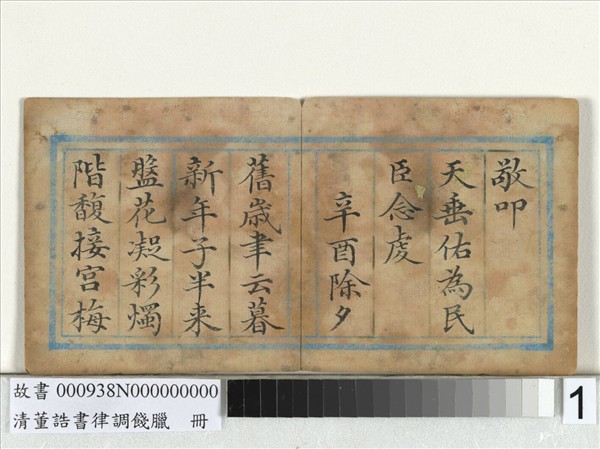 敬叩
天垂佑為民
臣念虔
辛酉除夕
舊歲聿云暮
新年子半来
盤花凝彩燭
階馥接宮梅
故書 000938N000000000
清董誥書律調餞臘 冊
1